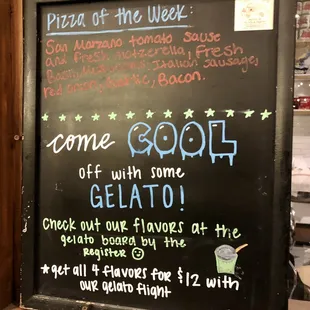 Pizza of the Week:
San Marzano tomato sause
and fresh motzerella, Fresh
Basil, Meatballs, Italian sausage,
red onion, Garlic, Bacon.
come COOL
off with some
GELATO!
Check out our flavors at the
gelato board by the
register
*get all 4 flavors for $12 with
our gelato flight